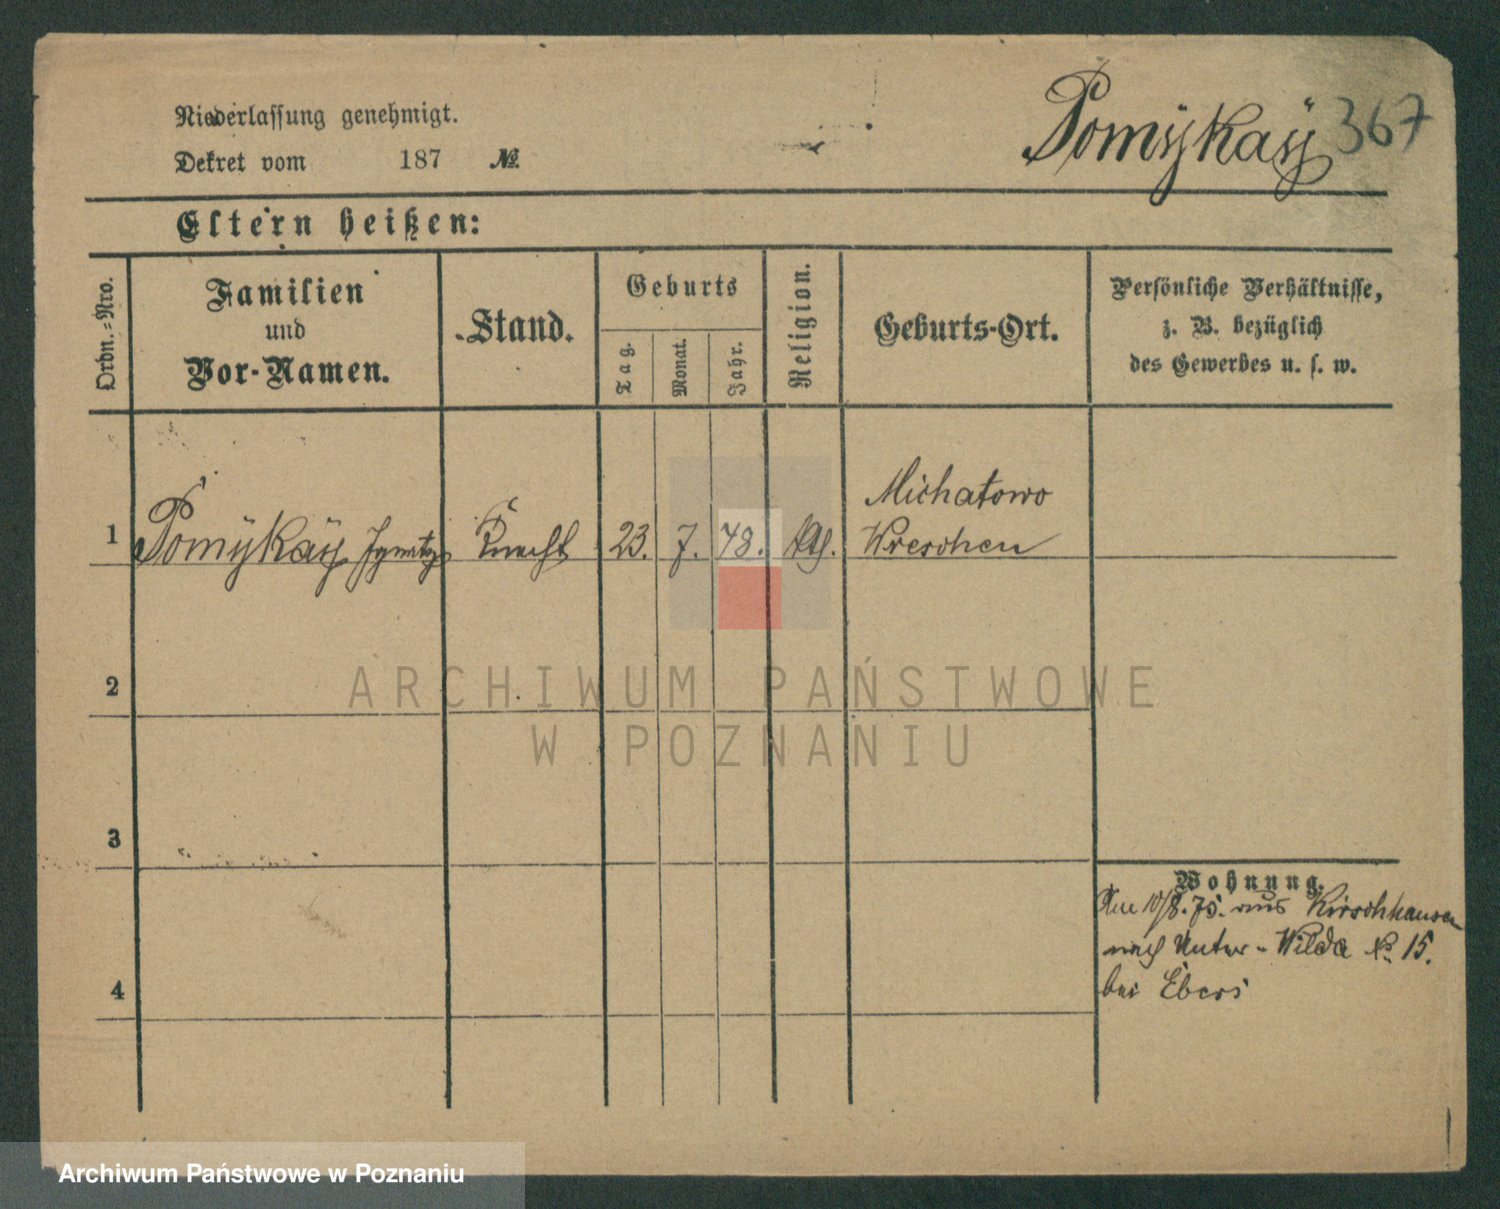 Niederlassung genehmigt.
Dekret vom 187 №
Pomÿkaÿ 367
Eltern heißen:
Ordn.-Nro.
Familien
und
Vor-Namen.
Stand.
Geburts
Tag.
Monat.
Jahr.
Religion.
Geburts-Ort.
Persönliche Verhältnisse,
z. B. bezüglich
des Gewerbes u. s. w.
1 Pomÿkaÿ Ignatz Knecht 23. 7. 48. kth. Michatowo
Wreschen
2
3
4
Wohnung.
Am 10/8. 75. aus Kirschhausen
nach Unter-Wilda № 15.
bei Ebers
ARCHIWUM PAŃSTWOWE
W POZNANIU
Archiwum Państwowe w Poznaniu